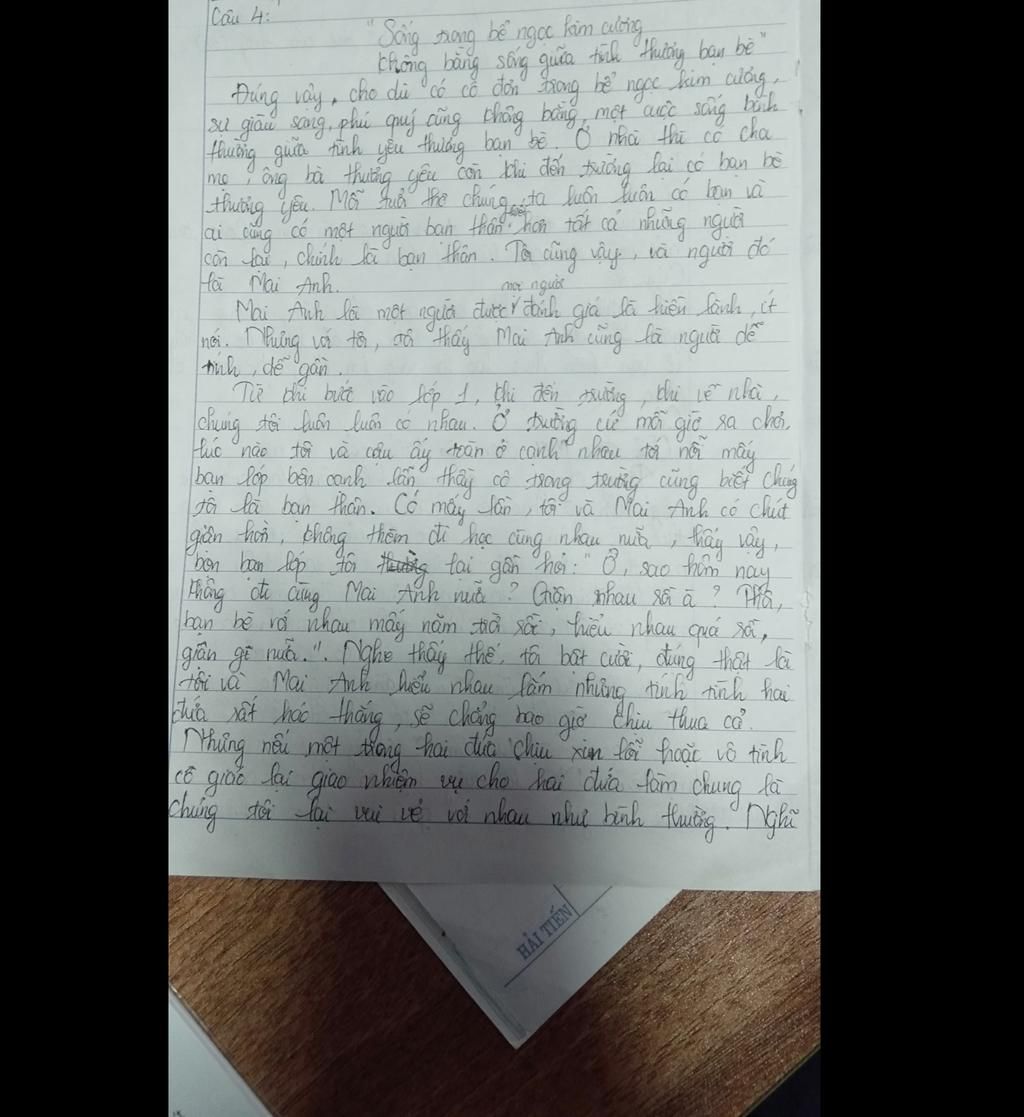 Câu 4:
"Sống trong bể ngọc kim cương
Không bằng sống giữa tình thương bạn bè"
Đúng vậy, cho dù có cô đơn trong bể ngọc kim cương,
sự giàu sang, phú quý cũng không bằng, một cuộc sống bình
thường giữa tình yêu thương bạn bè. Ở nhà thì có cha
mẹ, ông bà thương yêu còn khi đến trường lại có bạn bè
thương yêu. Mỗi tuổi thơ chúng ta luôn luôn có bạn và
ai cũng có một người bạn thân hơn tất cả những người
còn lại, chính là bạn thân. Tôi cũng vậy, và người đó
là Mai Anh.
Mai Anh là một người được mọi người đánh giá là hiền lành, ít
nói. Nhưng với tôi, tôi thấy Mai Anh cũng là người dễ
tính, dễ gần.
Từ khi bước vào lớp 1, khi đến trường, khi về nhà,
chúng tôi luôn luôn có nhau. Ở trường cứ mỗi giờ ra chơi,
lúc nào tôi và cậu ấy toàn ở cạnh nhau tới nỗi mấy
bạn lớp bên cạnh lẫn thầy cô trong trường cũng biết chúng
tôi là bạn thân. Có mấy lần, tôi và Mai Anh có chút
giận hờn, không thèm đi học cùng nhau nữa, thấy vậy,
bọn bạn lớp tôi lại gần hỏi: "Ơ, sao hôm nay
không đi cùng Mai Anh nữa? Giận nhau rồi à? Thôi,
bạn bè với nhau mấy năm trời rồi, hiểu nhau quá rồi,
giận gì nữa.". Nghe thấy thế, tôi bật cười, đúng thật là
tôi và Mai Anh hiểu nhau lắm nhưng tính tình hai
đứa rất hác thắng, sẽ chẳng bao giờ chịu thua cả.
Nhưng nếu một trong hai đứa chịu xin lỗi hoặc vô tình
cô giáo lại giao nhiệm vụ cho hai đứa làm chung là
chúng tôi lại vui vẻ với nhau như bình thường. Nghĩ
HẢI TIẾN